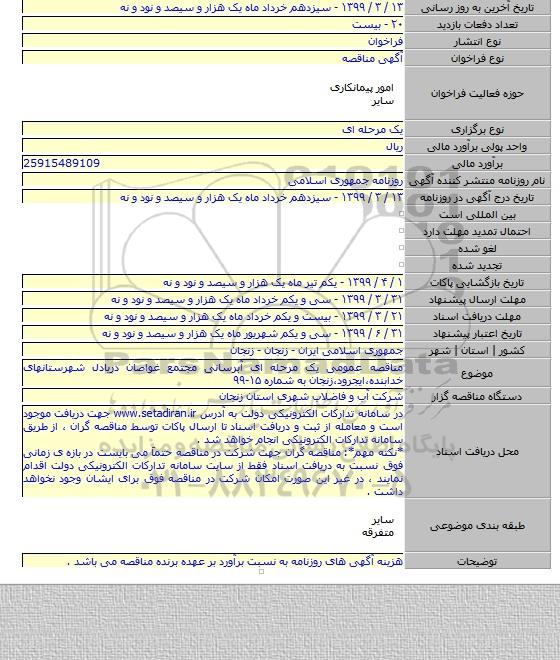 تاریخ آخرین به روز رسانی ۱۳ / ۳ / ۱۳۹۹ - سیزدهم خرداد ماه یک هزار و سیصد و نود و نه
تعداد دفعات بازدید ۲۰ - بیست
نوع انتشار فراخوان
نوع فراخوان آگهی مناقصه
حوزه فعالیت فراخوان امور پیمانکاری
سایر
نوع برگزاری یک مرحله ای
واحد پولی برآورد مالی ریال
برآورد مالی 25915489109
نام روزنامه منتشر کننده آگهی روزنامه جمهوری اسلامی
تاریخ درج آگهی در روزنامه ۱۳ / ۳ / ۱۳۹۹ - سیزدهم خرداد ماه یک هزار و سیصد و نود و نه
بین المللی است
احتمال تمدید مهلت دارد
لغو شده
تجدید شده
تاریخ بازگشایی پاکات ۱ / ۴ / ۱۳۹۹ - یکم تیر ماه یک هزار و سیصد و نود و نه
مهلت ارسال پیشنهاد ۳۱ / ۳ / ۱۳۹۹ - سی و یکم خرداد ماه یک هزار و سیصد و نود و نه
مهلت دریافت اسناد ۲۱ / ۳ / ۱۳۹۹ - بیست و یکم خرداد ماه یک هزار و سیصد و نود و نه
تاریخ اعتبار پیشنهاد ۳۱ / ۶ / ۱۳۹۹ - سی و یکم شهریور ماه یک هزار و سیصد و نود و نه
کشور | استان | شهر جمهوری اسلامی ایران - زنجان - زنجان
موضوع مناقصه عمومی یک مرحله ای آبرسانی مجتمع غواصان دریادل شهرستانهای
خدابنده،ایجرود،زنجان به شماره ۱۵-۹۹
دستگاه مناقصه گزار شرکت آب و فاضلاب شهری استان زنجان
محل دریافت اسناد در سامانه تدارکات الکترونیکی دولت به آدرس www.setadiran.ir جهت دریافت موجود
است و معامله از ثبت و دریافت اسناد تا ارسال پاکات توسط مناقصه گران ، از طریق
سامانه تدارکات الکترونیکی انجام خواهد شد .
*نکته مهم*: مناقصه گران جهت شرکت در مناقصه حتما می بایست در بازه ی زمانی
فوق نسبت به دریافت اسناد فقط از سایت سامانه تدارکات الکترونیکی دولت اقدام
نمایند ، در غیر این صورت امکان شرکت در مناقصه فوق برای ایشان وجود نخواهد
داشت .
طبقه بندی موضوعی سایر
متفرقه
توضیحات هزینه آگهی های روزنامه به نسبت برآورد بر عهده برنده مناقصه می باشد .
ParsNamadData
۰۲۱-۸۸۳۴۹۶۷۰-۵